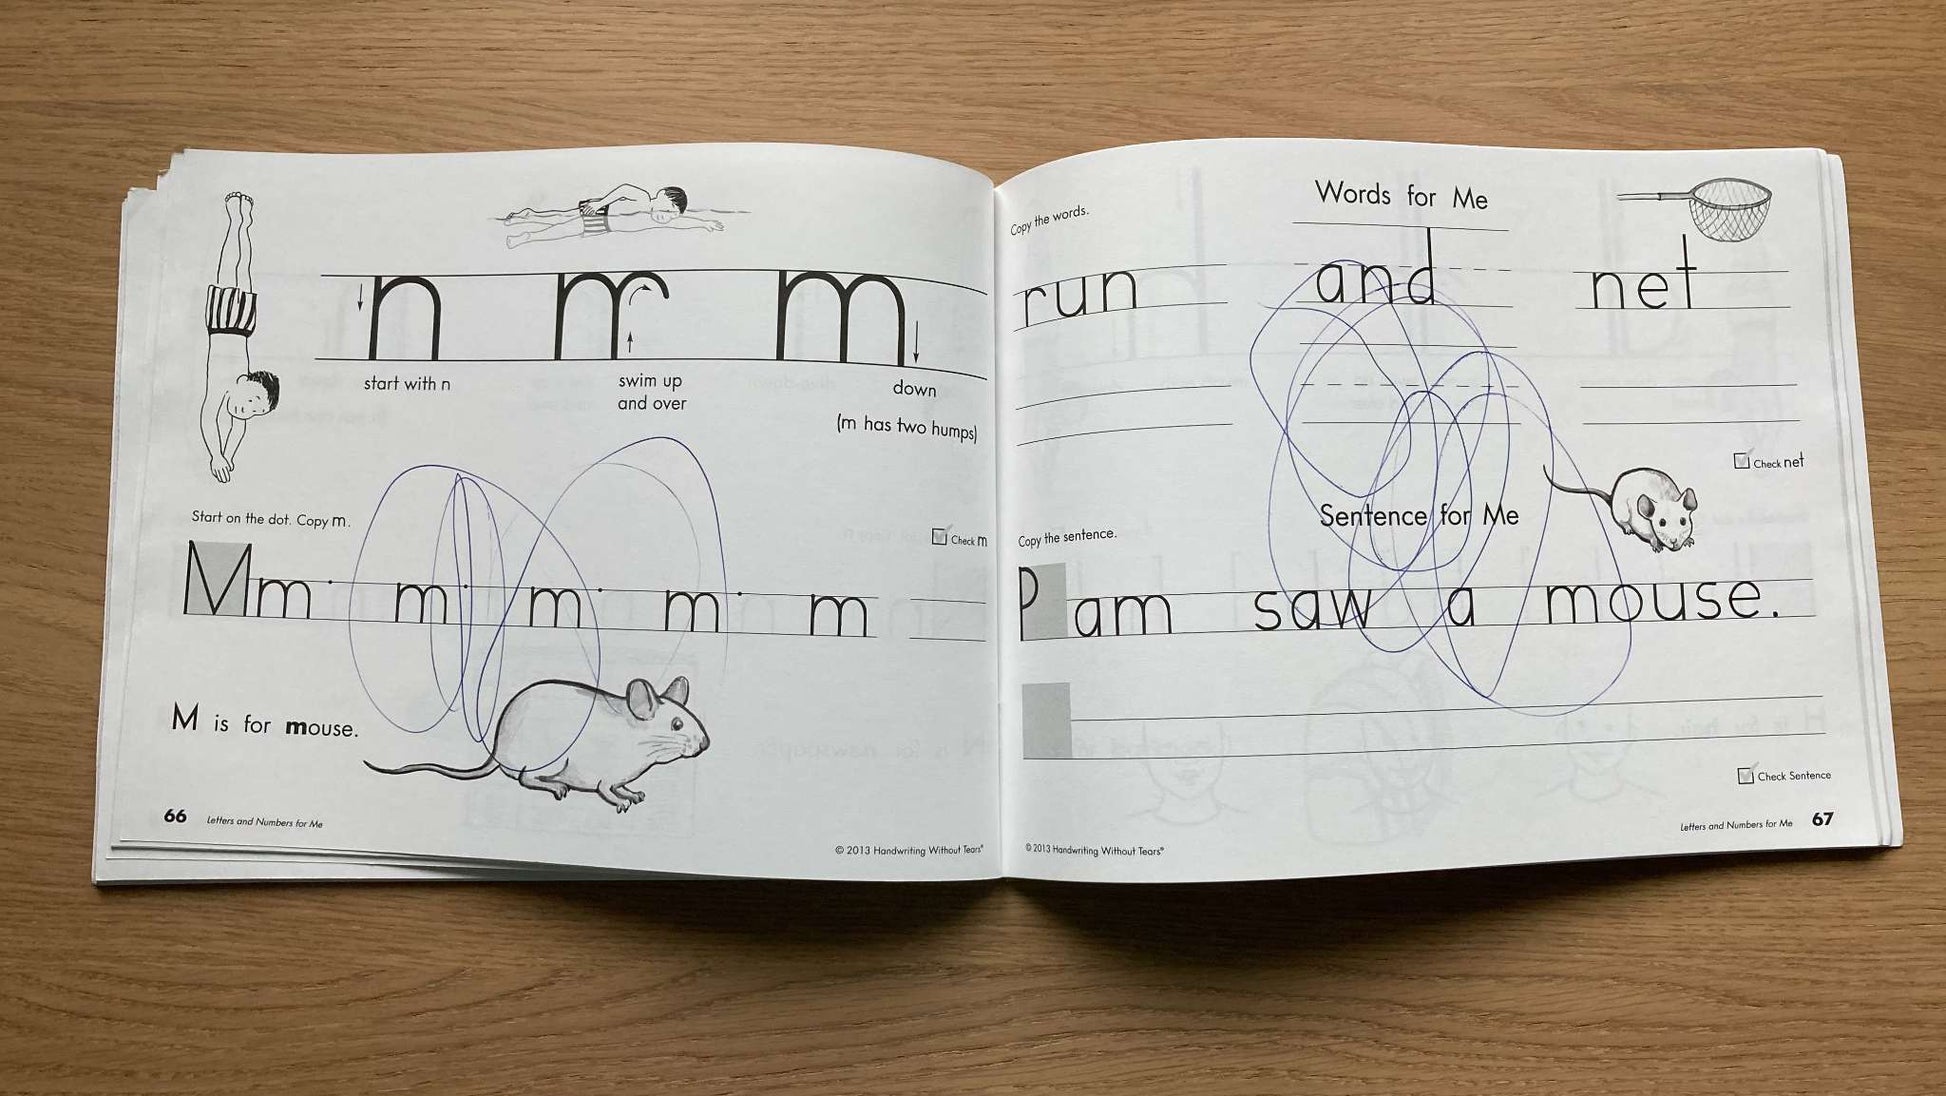 n m m
start with n
swim up
and over
down
(m has two humps)
Start on the dot. Copy m.
Check m
Mm m m m m
M is for mouse.
66 Letters and Numbers for Me
© 2013 Handwriting Without Tears®
Words for Me
Copy the words.
run and net
Check net
Sentence for Me
Copy the sentence.
Pam saw a mouse.
Check Sentence
Letters and Numbers for Me 67
© 2013 Handwriting Without Tears®